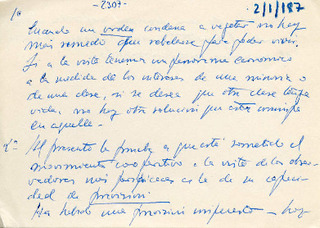 1º -2307- 2/1/187
Cuando un orden condena a vegetar no hay
más remedio que rebelarse para poder vivir.
Si a la vista tenemos un panorama económico
a la medida de los intereses de una minoría o
de una clase, si se desea que otra clase tenga
vida, no hay otra solución que esta irrumpa
en aquella.
2º- Al presente la prueba a que está sometido el
movimiento cooperativo a la vista de los obser-
vadores más perspicaces es la de su capaci-
dad de previsión.
Ha habido una previsión imperante - hay